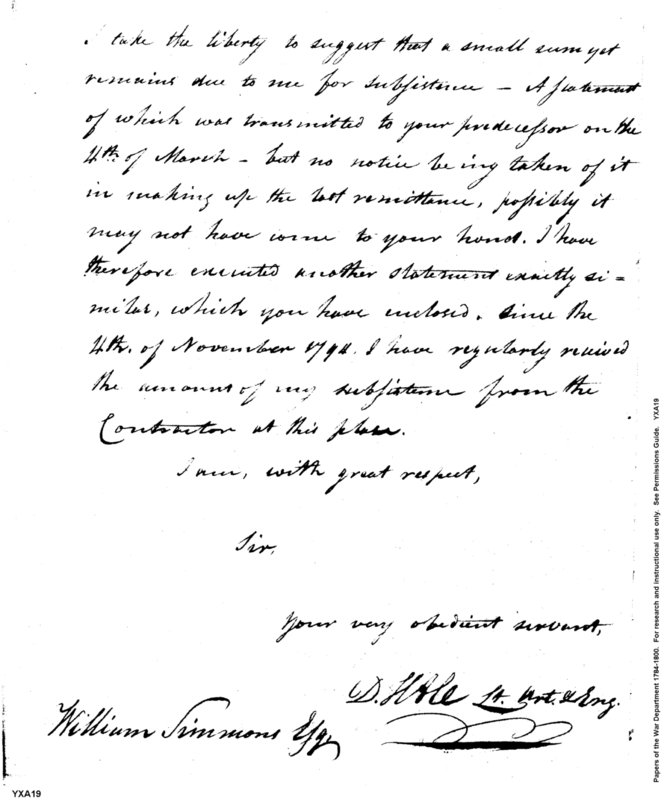 I take the liberty to suggest that a small sum yet
remains due to me for subsistence – A statement
of which was transmitted to your predecessor on the
4th of March – but no notice being taken of it
in making up the last remittance, possibly it
may not have come to your hand. I have
therefore executed another statement exactly si=
milar, which you have enclosed. Since the
4th. of November 1794. I have regularly received
the amount of my subsistence from the
Contractor at this place.
I am, with great respect,
Sir,
Your very obedient servant,
D. Hole Lt. Art. & Eng.
William Simmons Esq.
YXA19
Papers of the War Department 1784-1800. For research and instructional use only. See Permissions Guide. YXA19